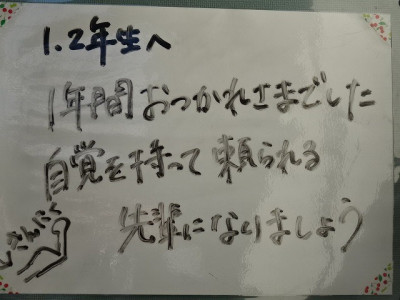 1.2年生へ
1年間おつかれさまでした
自覚を持って頼られる
先輩になりましょう